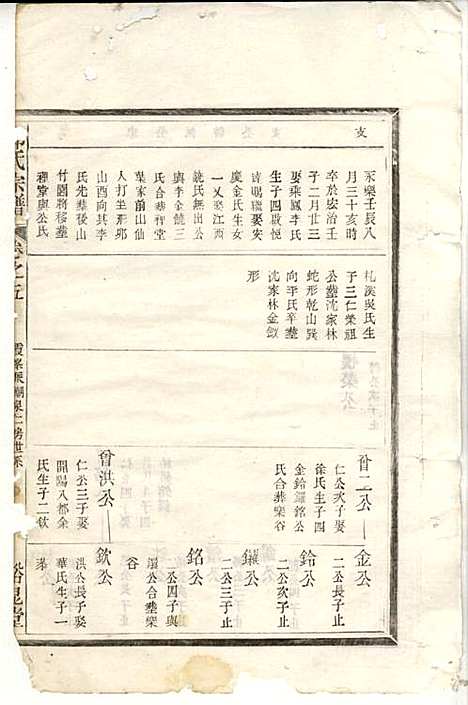 支
永樂壬辰八
月三十亥時
卒於宏治壬
子二月廿三
娶乘鳳李氏
生子四啟悅
詩賜聰娶安
慶金氏生女
一乂娶江西
饒氏無出公
與李金饒三
氏合葬禪堂
葉家前山仙
人打坐形邓
山西向其李
氏先葬後山
竹園將移葬
禪堂與公氏
札溪吳氏生
子三仁榮祖
公葬沈家林
蛇形乾山巽
向李氏卒葬
沈家林金釵
形
曾二公
仁公次子娶
徐氏生子四
金鉿鑼銘公
氏合葬欒谷
曾洪公
仁公三子娶
開陽八都余
氏生子二欽
金公
二公長子止
鉿公
二公次子止
鑼公
二公三子止
銘公
二公四子與
鑼公合葬欒
谷
欽公
洪公長子娶
華氏生子一
氏宗譜
卷之五